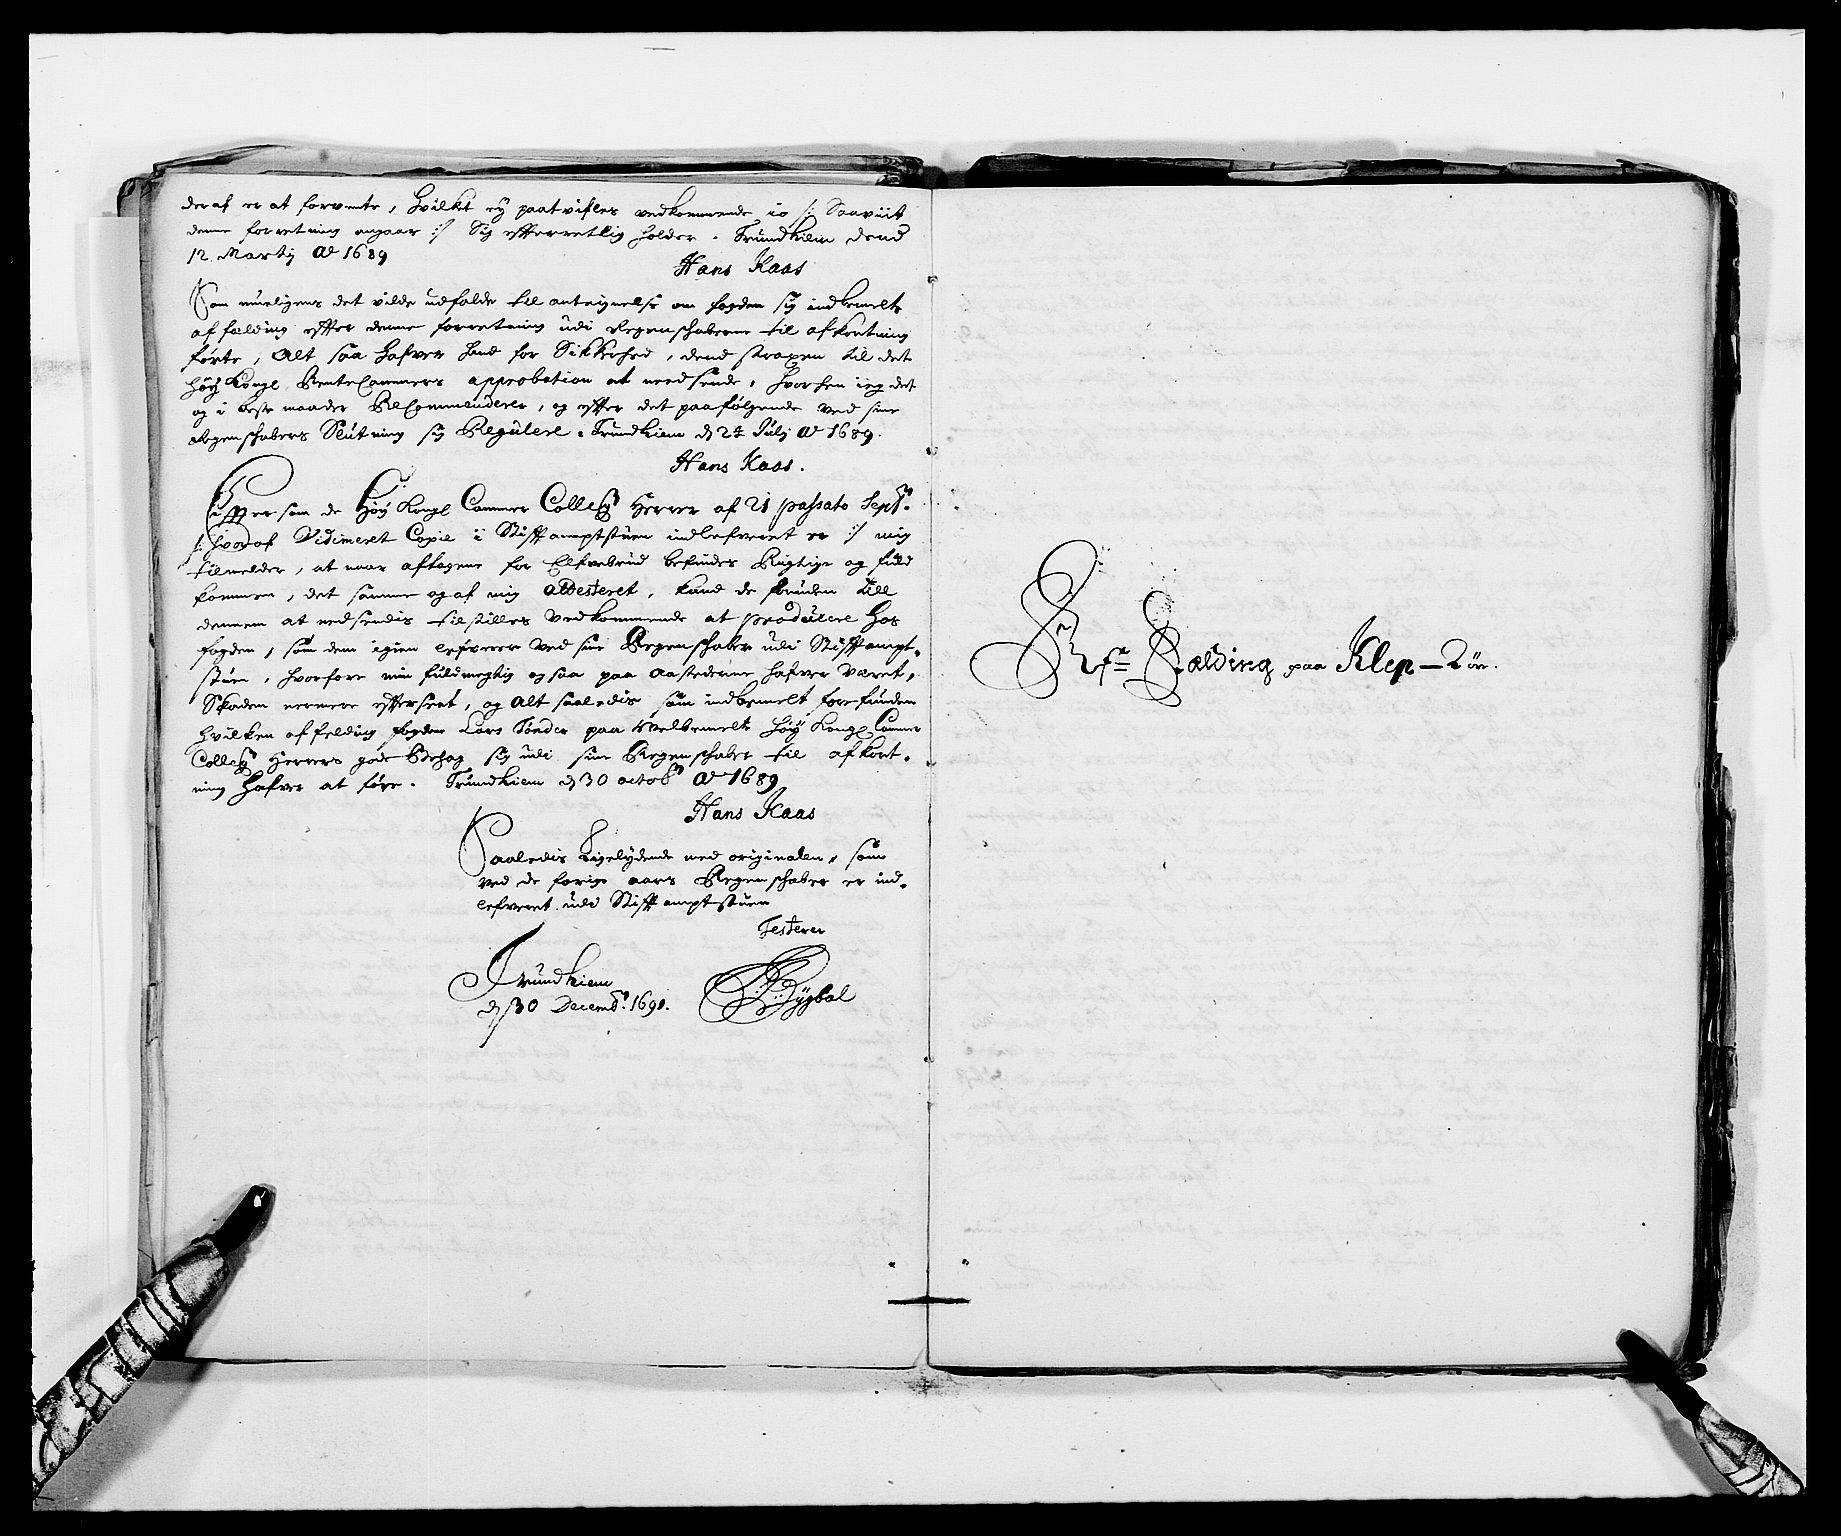 deraf er at forvente, hvilket ey paatvifles vedkommende io /: Saaviit
denne forretning angaar :/ Sig efterretlig holder. Trundhiem dend
12 Martij Ao 1689
Hans Kaas
Som mueligens det vilde udfalde til antegnelse om fogden sig indbemelte
affelding effter denne forretning udi Regenschaberne til afkortning
førte, Alt saa hafver hand for Sikkerhed, dend straxen til det
høy Kongl Rente Cammers approbation at needsende, hvorhen ieg det
og i beste maader ReCommenderer, og effter det paafølgende ved sine
Regenschabers Slutning sig Regulere. Trundhiem d 24 Julj Ao 1689.
Hans Kaas.
Effter som de Høy Kongl Cammer Colleg Herrer af 21 passato Sept.
/: hvoraf Vidimeret Copie i Stifft amptstuen indlefveret er :/ mig
tilmelder, at naar aftagene for Elfvebrud befindes Rigtige og fuld
kommen, det samme og af mig Attesteret, kand de foruden till
dennem at nedsendis tilstilles Vedkommende at producere hos
fogden, som dem igien lefverer ved sine Regenschaber udi Stifft ampt-
stuen, hvorfore min fuldmegtig og saa paa Aastederne hafver været,
Skaden nermere effterseet, og Alt saaledis som indbemelt forefunden
hvilken affelding fogden Lars Tønder paa Velbemelte høy Kongl Cammer
Colleg Herrers gode Behag sig udi sine Regenschaber til afkort-
ning hafver at føre. Trundhiem d 30 octob Ao 1689
Hans Kaas
Saaledis Ligelydende med originalen, som
ved de forige aars Regenschaber er ind-
lefveret udi Stifft amptstuen
Testerer
Trundhiem
d 30 Decemb. 1690.
Fælding paa Klep-Løre.